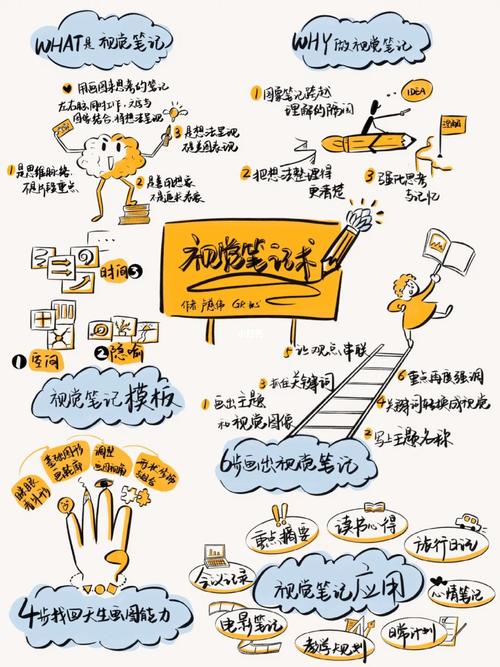 WHAT是视觉笔记
用画图来思考的笔记
左右脑同时工作,文字与
图像结合,将想法呈现
1是思维脉络,
不是片段重点
2是画思想家
不是追求艺术
3是想法呈现
不是美图表现
WHY做视觉笔记
1图像笔记跨越
理解的隔阂
IDEA
2把想法整理得
更清楚
3强化思考
与记忆
视觉笔记术
作者 卢慈伟
时间3
1空间
2隐喻
视觉笔记模板
5让观点串联
3抓住关键词
1画出主题
和视觉图像
6重点再度强调
4关键词转换成视觉
2写上主题名称
6步画出视觉笔记
眯眼
看外形
基础图形
画轮廓
调整
4步找回天生画图能力
重点摘要
读书心得
旅行日记
会议记录
视觉笔记应用
心情笔记
电影笔记
教学规划
日常计划